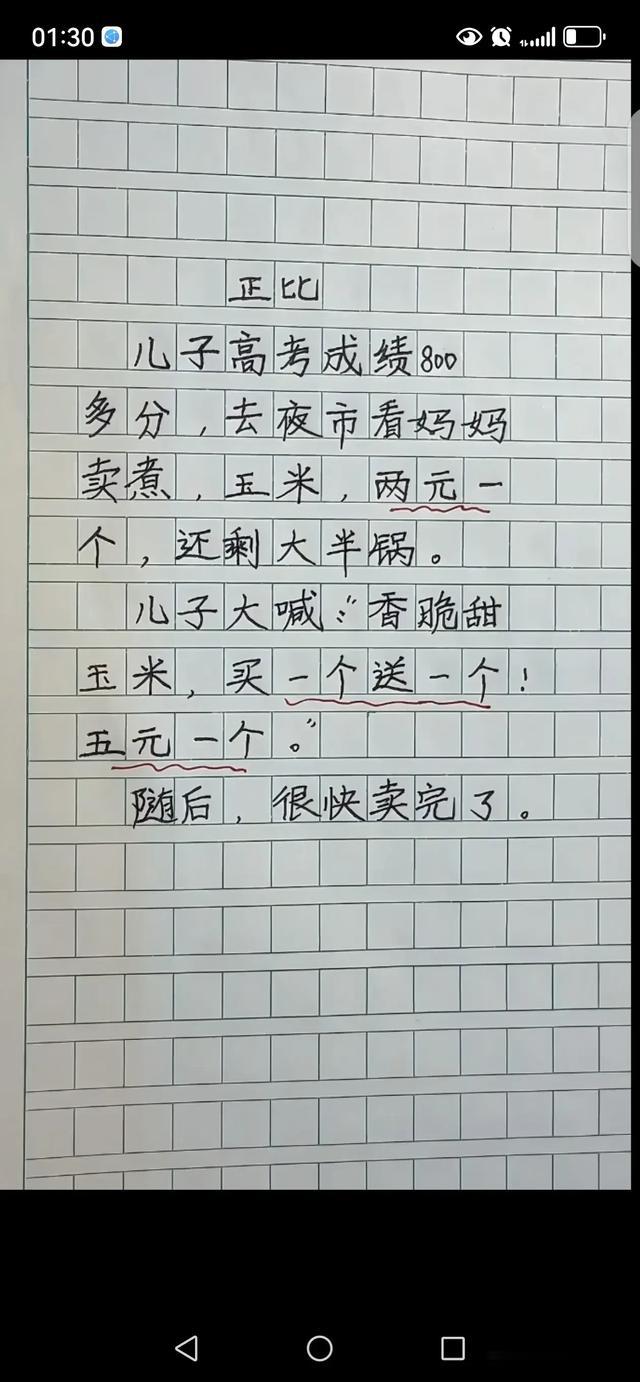 01:30
正比
儿子高考成绩800
多分，去夜市看妈妈
卖煮，玉米，两元一
个，还剩大半锅。
儿子大喊：“香脆甜
玉米，买一个送一个！
五元一个。”
随后，很快卖完了。